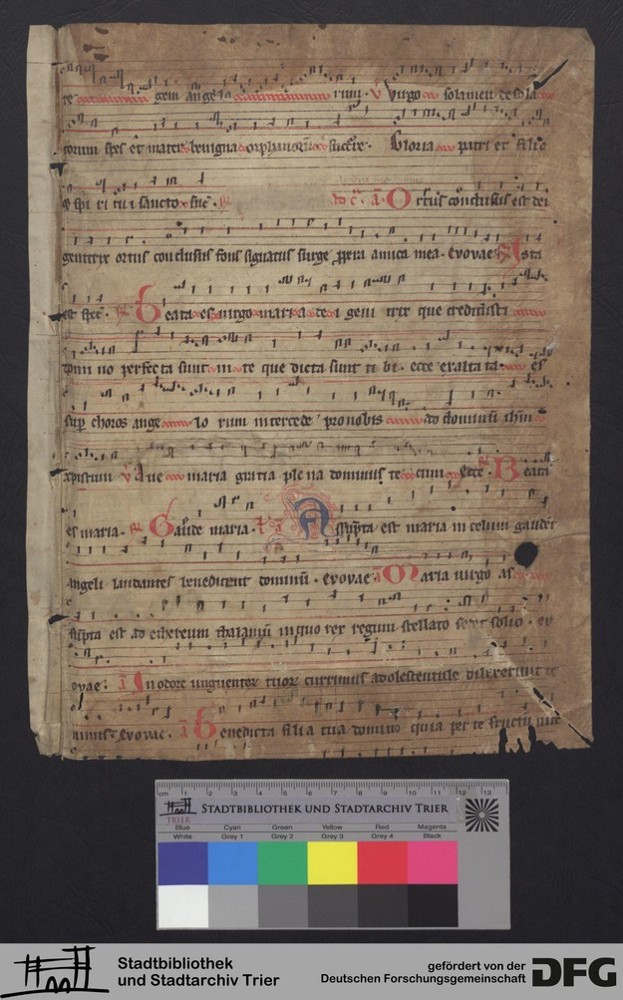 te gem ange lo rum · V Virgo solamen desola
torum spes et mater benigna orphanorum succurre · Gloria patri et filio
et spi ri tu i sancto · A Ortus conclusus est dei
genitrix ortus conclusus fons signatus surge ppera amica mea · Evovae · Ista
est spe · Beata es virgo maria de i geni trix que credidisti
domi no perfec ta sunt in te que dicta sunt ti bi · ecce exalta ta es
sup choros ange lo rum intercede pro nobis ad dominum ihm
xpistum V Aue maria gratia ple na dominus te cum · Ecce · Beata
es maria · Gaude maria · A Assupta est maria in celum gaudet
angeli laudantes benedicunt dominū · evovae · A Maria uirgo as
supta est ad ethereum thalamū in quo rex regum stellato sedet solio · ev
ovae · A In odore unguentor tuor currimus adolescentule dilexerunt te
nimis · Evovae · A Benedicta filia tua domino quia per te fructū vite
STADTBIBLIOTHEK UND STADTARCHIV TRIER
TRIER
Blue Cyan Green Yellow Red Magenta
White Grey 1 Grey 2 Grey 3 Grey 4 Black
Stadtbibliothek
und Stadtarchiv Trier
gefördert von der
Deutschen Forschungsgemeinschaft
DFG